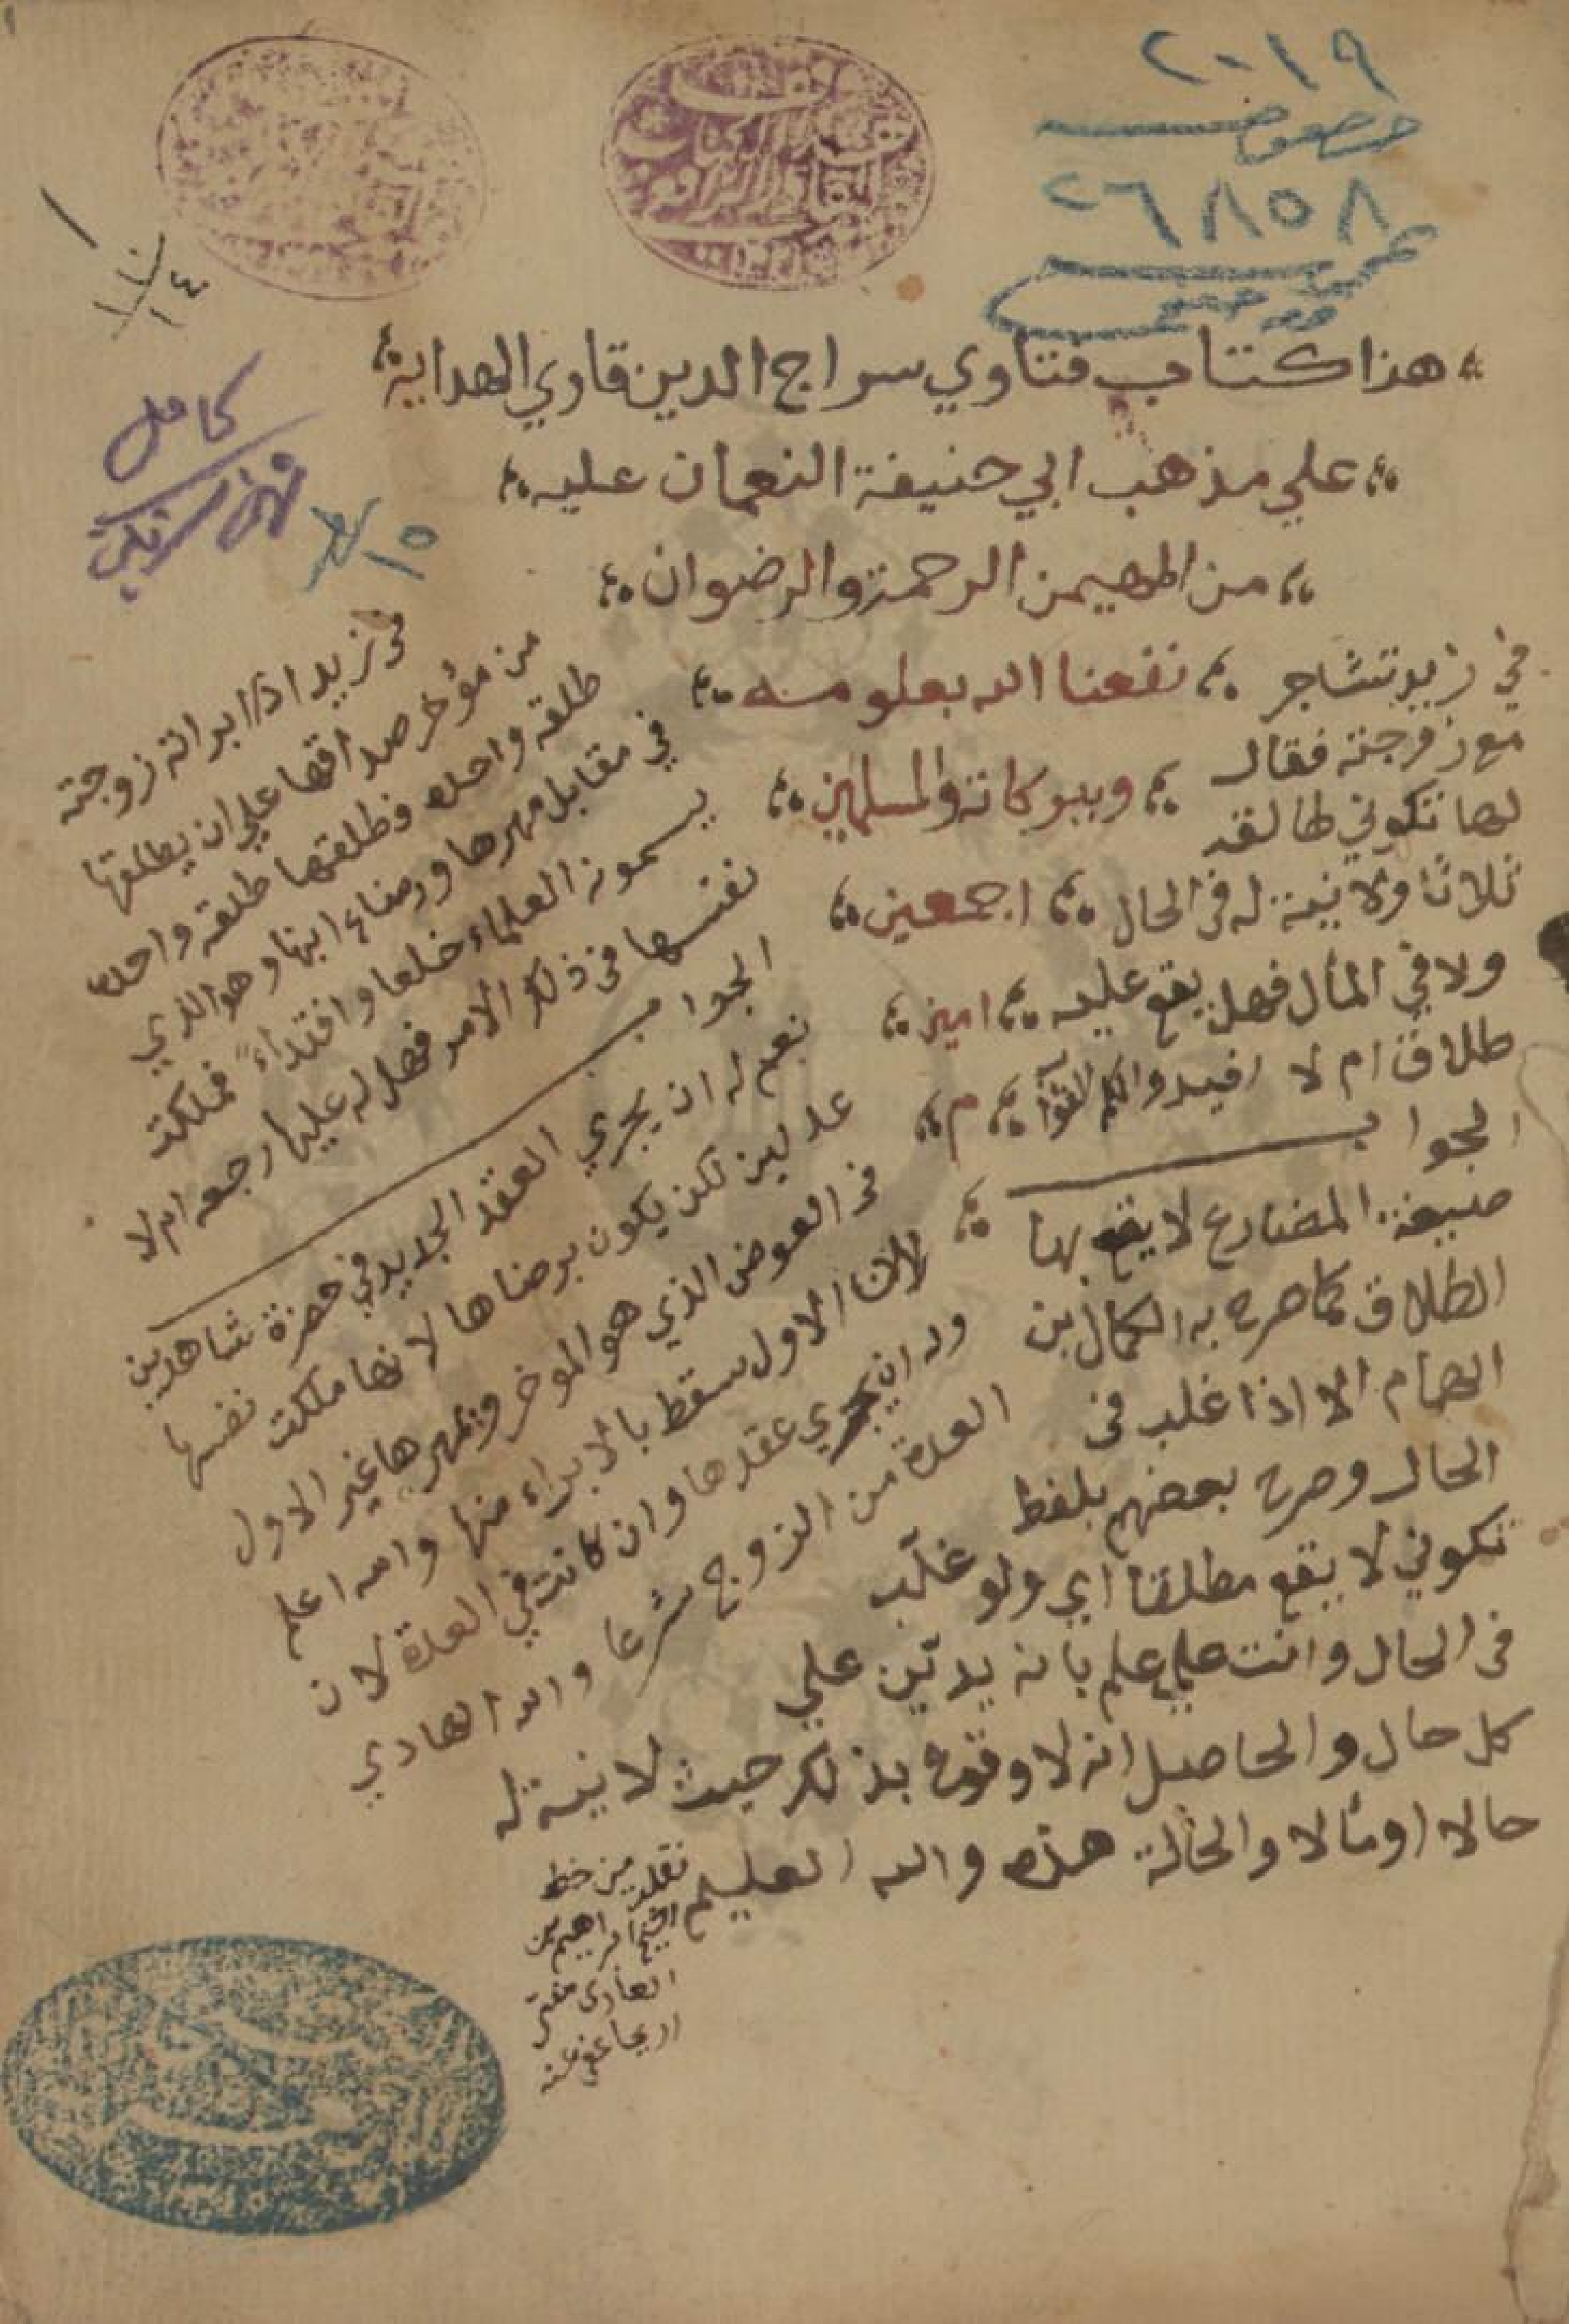 ٢٠١٩
خصوصي
٢٦٨٥٨
عمومي
١٤
كامل
١٥
هذا كتاب فتاوي سراج الدين قاري الهداية
علي مذهب ابي حنيفة النعمان عليه
من المهيمن الرحمة والرضوان
نفعنا الله بعلومه
وببركاته والمسلمين
اجمعين
امين
م
في زيد تشاجر
مع زوجته فقال
لها تكوني طالقه
ثلاثا ولا نية له في الحال
ولا في المأل فهل يقع عليه
طلاق ام لا افيدوا
الجواب
صيغة المضارع لا يقع بها
الطلاق كما صرح به الكمال بن
الهمام الا اذا غلب في
الحال وصرح بعضهم بلفظ
تكوني لا يقع مطلقا اي ولو غلّب
في الحال وانت علي علم بانه يديّن علي
كل حال والحاصل انه لا وقوع بذلك حيث لا نية له
حالا او مألا والحالة هذه والله العليم
نقلت من خط
الشيخ ابراهيم بن
مفتي
اريحا عفي عنه
في زيد اذا ابراته زوجته
من مؤخر صداقها علي ان يطلقها
طلقه واحده فطلقها طلقه واحده
في مقابل مهرها ورضاء ابنها وهو الذي
يسمونه العلماء خلعا وافتداء فملكت
نفسها في ذلك الامر فهل له عليها رجعه ام لا
الجواب
نعم له ان يجري العقد الجديد في حضرة شاهدين
عدلين لكن يكون برضاها لانها ملكت نفسها
في العوض الذي هو الموخر ومهرها غير الاول
لان الاول سقط بالابراء منها والله اعلم
وله ان يجري عقدها وان كانت في العدة لان
العدة من الزوج شرعا والله الهادي